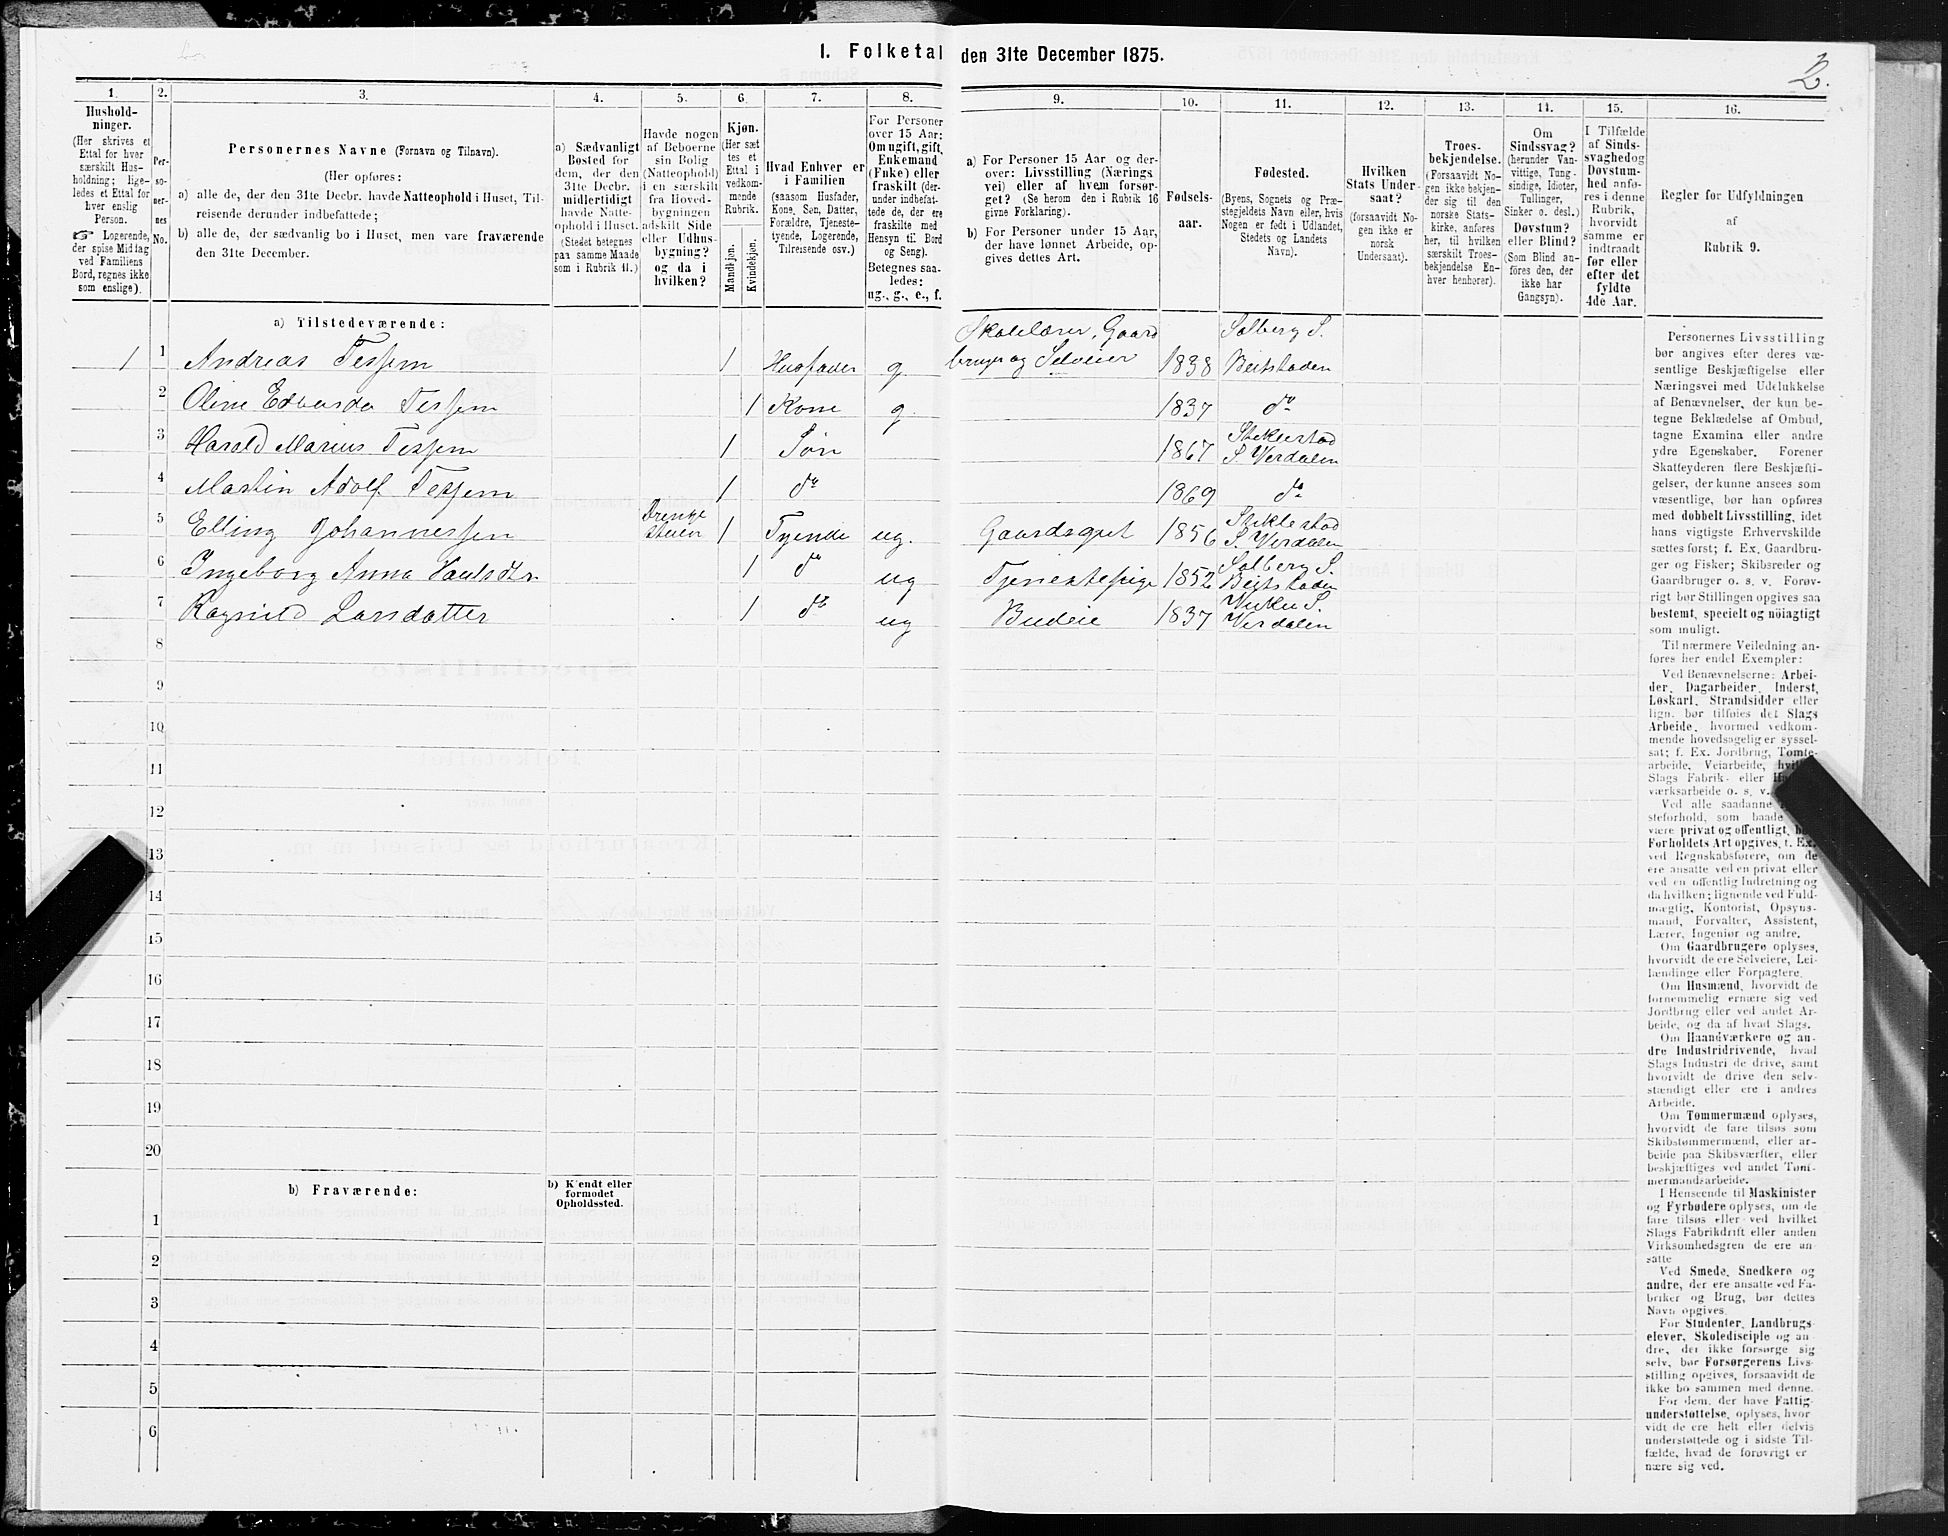 1. Folketal den 31te December 1875.
2.
1.
Hushold-
ninger.
(Her skrives et
Ettal for hver
særskilt Hus-
holdning; lige-
ledes et Ettal for
hver enslig
Person.
☞ Logerende,
der spise Middag
ved Familiens
Bord, regnes ikke
som enslige).
2.
Per-
so-
ner-
nes
No.
3.
Personernes Navne (Fornavn og Tilnavn).
(Her opføres:
a) alle de, der den 31te Decbr. havde Natteophold i Huset, Til-
reisende derunder indbefattede;
b) alle de, der sædvanlig bo i Huset, men vare fraværende
den 31te December.
4.
a) Sædvanligt
Bosted for
dem, der den
31te Decbr.
midlertidigt
havde Natte-
ophold i Huset.
(Stedet betegnes
paa samme Maade
som i Rubrik 11.)
5.
Havde nogen
af Beboerne
sin Bolig
(Natteophold)
i en særskilt
fra Hoved-
bygningen
adskilt Side
eller Udhus-
bygning?
og da i
hvilken?
6.
Kjøn.
(Her sæt
tes et
Ettal i
vedkom-
mende
Rubrik.
Mandkjøn.
Kvindekjøn.
7.
Hvad Enhver er
i Familien
(saasom Husfader,
Kone, Søn, Datter,
Forældre, Tjeneste-
tyende, Logerende,
Tilreisende osv.)
8.
For Personer
over 15 Aar:
Om ugift, gift,
Enkemand
(Enke) eller
fraskilt (der-
under indbefat-
tede de, der ere
fraskilte med
Hensyn til Bord
og Seng).
Betegnes saa-
ledes:
ug., g., e., f.
9.
a) For Personer 15 Aar og der-
over: Livsstilling (Nærings
vei) eller af hvem forsør-
get? (Se herom den i Rubrik 16
givne Forklaring).
b) For Personer under 15 Aar,
der have lønnet Arbeide, op-
gives dettes Art.
10.
Fødsels-
aar.
11.
Fødested.
(Byens, Sognets og Præ-
stegjeldets Navn eller, hvis
Nogen er født i Udlandet,
Stedets og Landets
Navn).
12.
Hvilken
Stats Under-
saat?
(forsaavidt No-
gen ikke er
norsk
Undersaat).
13.
Troes-
bekjendelse.
(Forsaavidt No-
gen ikke bekjen-
der sig til den
norske Stats-
kirke, anføres
her, til hvilken
særskilt Troes-
bekjendelse En-
hver henhører).
14.
Om
Sindssvag?
(herunder Van-
vittige, Tung-
sindige, Idioter,
Tullinger,
Sinker o. desl.)
Døvstum?
eller Blind?
(Som Blind an-
føres den, der
ikke har
Gangsyn).
15.
I Tilfælde
af Sinds-
svaghed og
Døvstum-
hed anfø-
res i denne
Rubrik,
hvorvidt
samme er
indtraadt
før eller
efter det
fyldte
4de Aar.
16.
Regler for Udfyldningen
af
Rubrik 9.
a) Tilstedeværende:
1 1 Andreas Tessem 1 Husfader g. Skolelærer, Gaard
bruger og Selveier 1838 Solberg S.
Beitstaden
2 Oline Edvarda Tessem 1 Kone g. 1837 do
3 Harald Marius Tessem 1 Søn 1867 Stiklestad
S. Verdalen
4 Martin Adolf Tessem 1 do 1869 do
5 Elling Johannessen Drenge
stuen 1 Tyende ug. Gaardsgut 1856 Stiklestad
S. Verdalen
6 Ingeborg Anna Paulsdtr. 1 do ug Tjenestepige 1852 Solberg S.
Beitstaden
7 Ragnild Larsdatter 1 do ug Budeie 1837 Vuku S.
Verdalen
8
9
10
11
12
13
14
15
16
17
18
19
20
b) Fraværende:
b) Kjendt eller
formodet
Opholdssted.
1
2
3
4
5
6
Personernes Livsstilling
bør angives efter deres væ-
sentlige Beskjæftigelse eller
Næringsvei med Udelukkelse
af Benævnelser, der kun be-
tegne Beklædelse af Ombud,
tagne Examina eller andre
ydre Egenskaber. Forener
Skatteyderen flere Beskjæfti-
gelser, der kunne ansees som
væsentlige, bør han opføres
med dobbelt Livsstilling, idet
hans vigtigste Erhvervskilde
sættes først; f. Ex. Gaardbru-
ger og Fisker; Skibsreder og
Gaardbruger o. s. v. Forøv-
rigt bør Stillingen opgives saa
bestemt, specielt og nøiagtigt
som muligt.
Til nærmere Veiledning an-
føres her endel Exempler:
Ved Benævnelserne: Arbei-
der, Dagarbeider, Inderst,
Løskarl, Strandsidder eller
lign. bør tilføies det Slags
Arbeide, hvormed vedkom-
mende hovedsagelig er syssel-
sat; f. Ex. Jordbrug, Tomte-
arbeide, Veiarbeide,
Slags Fabrik- eller
værksarbeide o. s. v.
Ved alle saadanne
steforhold, som baade
være privat og offentligt,
Forholdets Art opgives, f. Ex.
ved Regnskabsførere, om de
ere ansatte ved en privat eller
ved en offentlig Indretning og
da hvilken; lignende ved Fuld-
mægtig, Kontorist, Opsyns-
mand, Forvalter, Assistent,
Lærer, Ingeniør og andre.
Om Gaardbrugere oplyses,
hvorvidt de ere Selveiere, Lei-
lændinge eller Forpagtere.
Om Husmænd, hvorvidt de
fornemmelig ernære sig ved
Jordbrug eller ved andet Ar-
beide, og da af hvad Slags.
Om Haandværkere og an-
dre Industridrivende, hvad
Slags Industri de drive, samt
hvorvidt de drive den selv-
stændigt eller ere i andres
Arbeide.
Om Tømmermænd oplyses,
hvorvidt de fare tilsøs som
Skibstømmermænd, eller ar-
beide paa Skibsværfter, eller
beskjæftiges ved andet Tøm-
mermandsarbeide.
I Henseende til Maskinister
og Fyrbødere oplyses, om de
fare tilsøs eller ved hvilket
Slags Fabrikdrift eller anden
Virksomhedsgren de ere an-
satte
Ved Smede, Snedkere og
andre, der ere ansatte ved Fa-
briker og Brug, bør dettes
Navn opgives.
For Studenter, Landbrugs-
elever, Skoledisciple og an-
dre, der ikke forsørge sig
selv, bør Forsørgerens Livs-
stilling opgives, forsaavidt de
ikke bo sammen med denne.
For dem, der have Fattig-
understøttelse, oplyses, hvor
vidt de ere helt eller delvis
understøttede og i sidste Til-
fælde, hvad de forøvrigt er
nære sig ved.